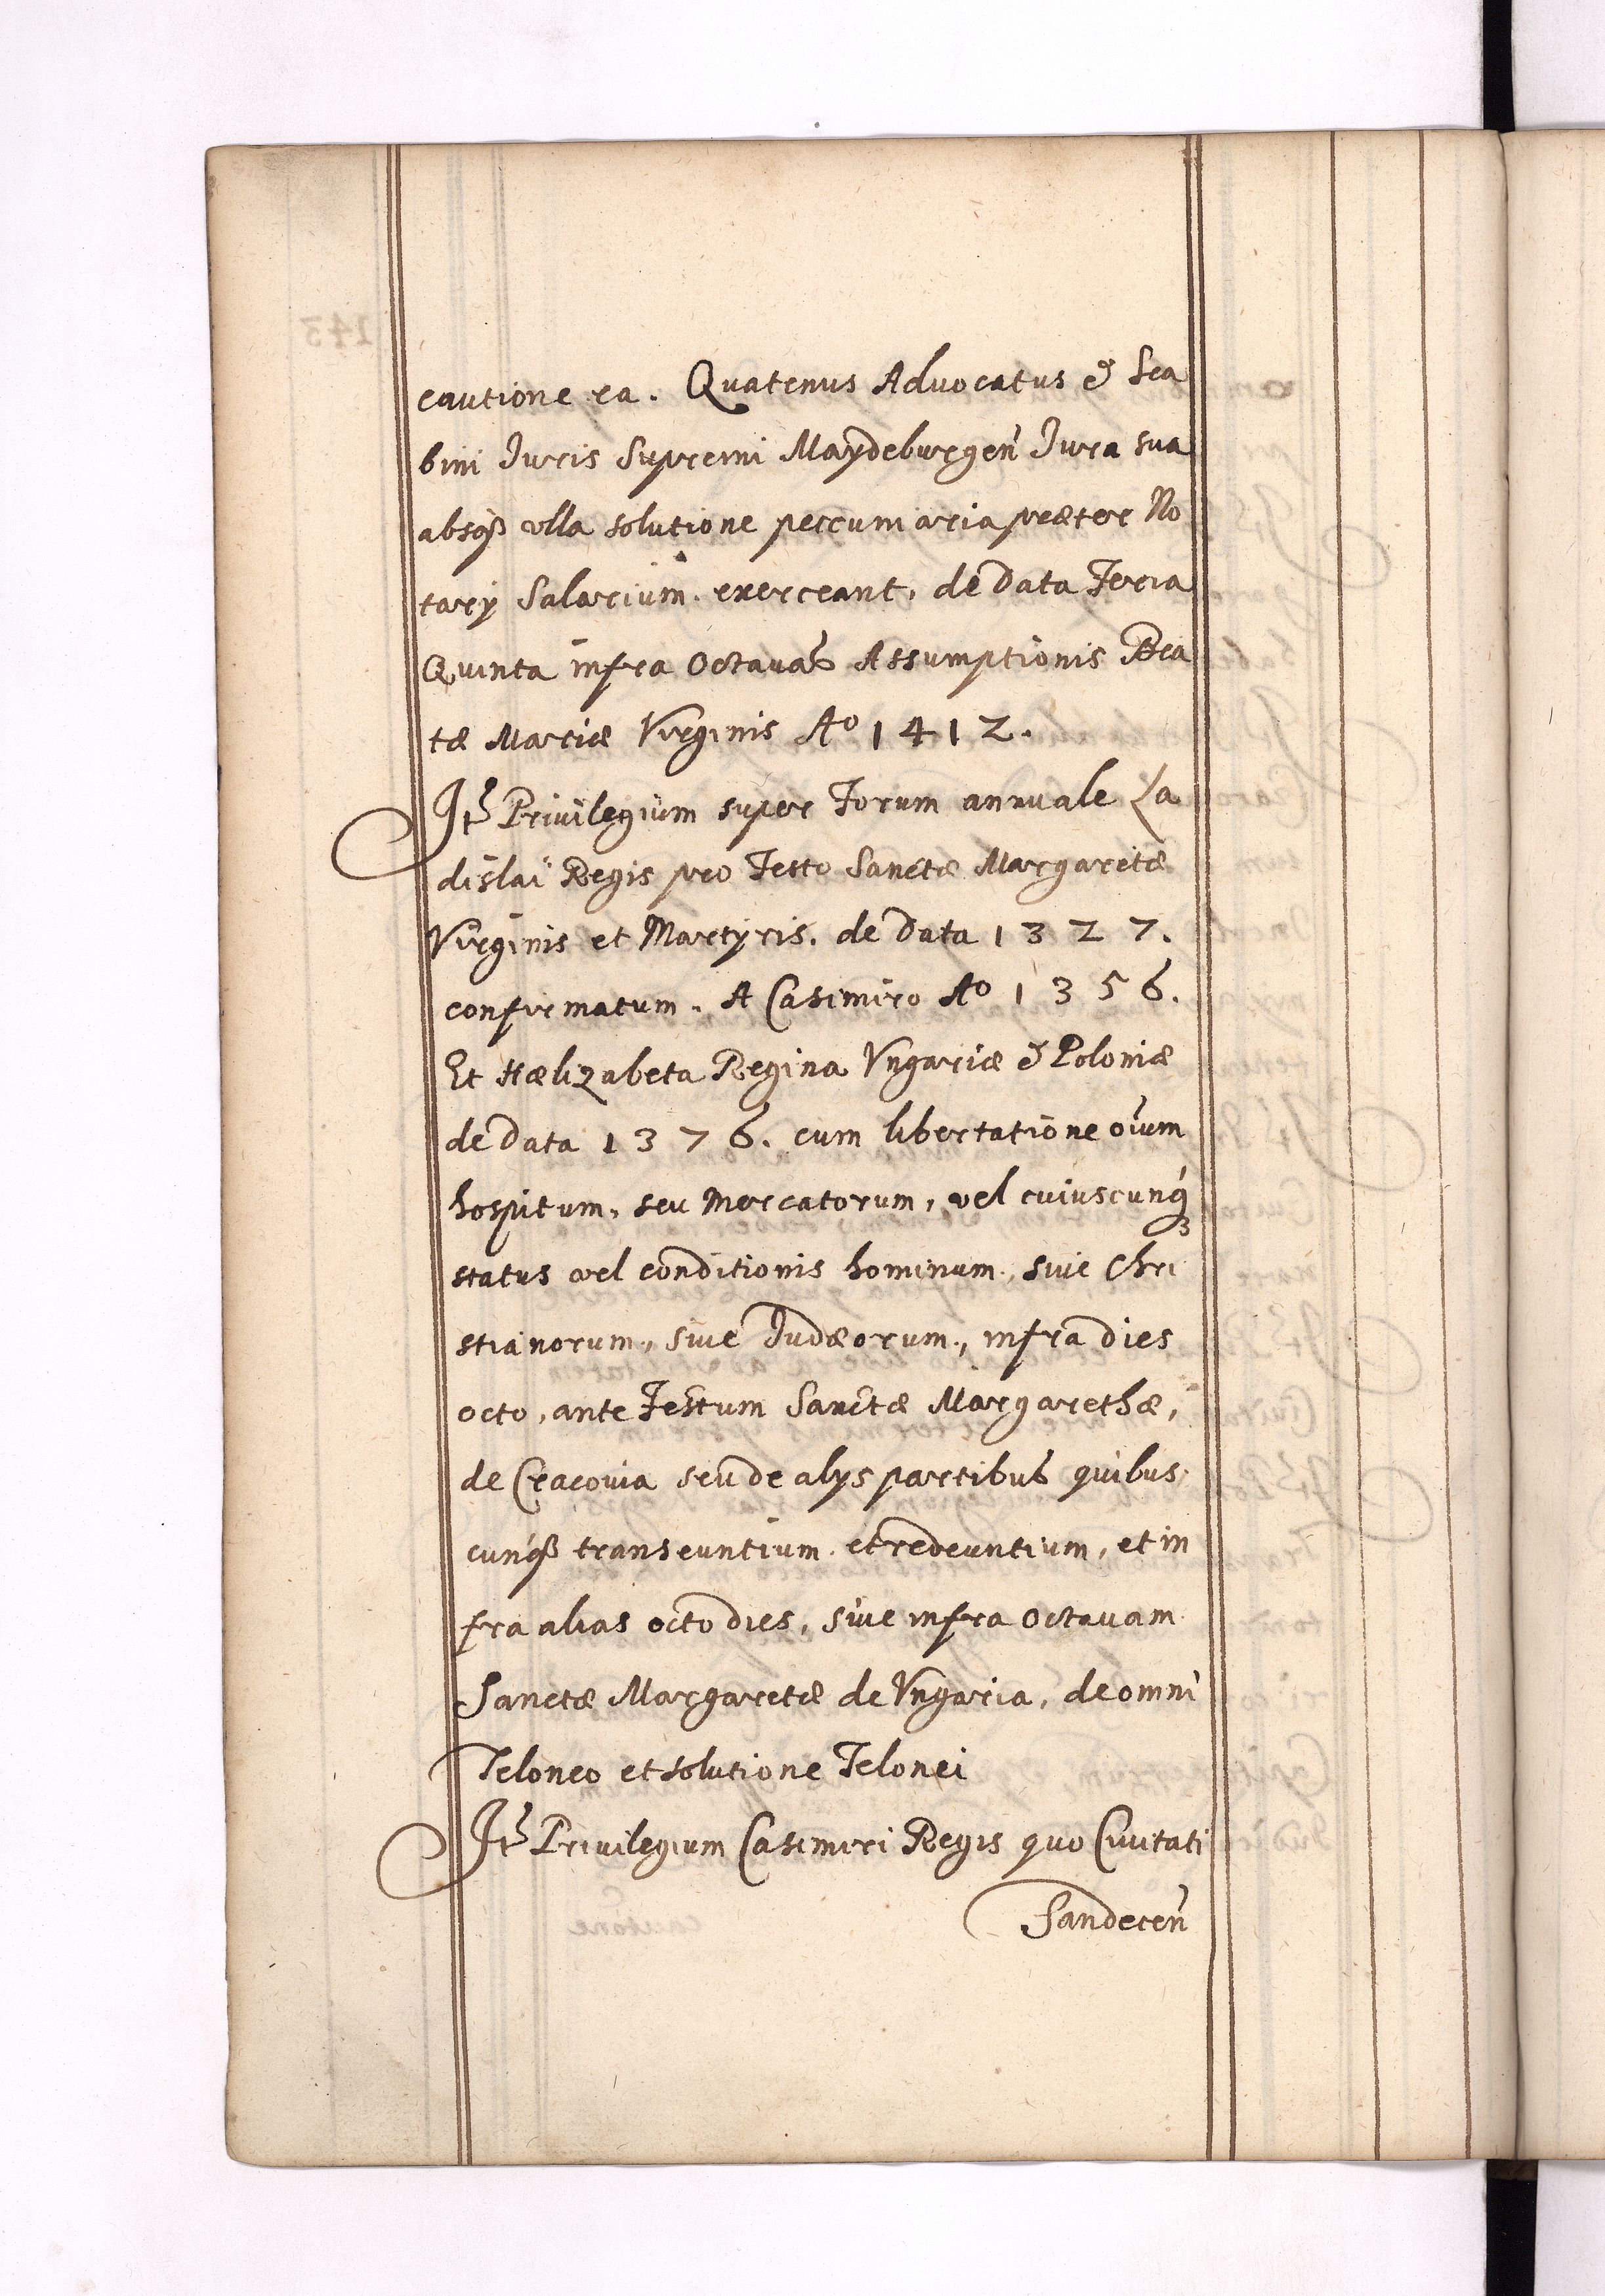 cautione ea. Quatenus Advocatus & Sca
bini Juris Supremi Maydeburgen̄ Jura sua
absq̨ ulla solutione peccuniaria præter No
tarij Salarium. exerceant, de Data Feria
Quinta infra Octauas Assumptionis Bea
tæ Mariæ Virginis Aº 1412.
It̄ Priuilegium super Forum annuale La
dislai Regis pro Festo Sanctæ Margaretæ
Virginis et Martyris. de Data 1327.
confirmatum. A Casimiro Aº 1356.
Et Hælizabeta Regina Vngariæ & Poloniæ
de Data 1376. cum libertatione oīum
hospitum, seu Mercatorum, vel cuiuscunq̨
status vel conditionis hominum, siue Chri
stianorum, siue Judæorum, infra dies
octo, ante Festum Sanctæ Margarethæ,
de Cracouia seu de alys partibus quibus
cunq̨ transeuntium et redeuntium, et in
fra alias octo dies, siue infra Octauam
Sanctæ Margaretæ de Vngaria, de omni
Teloneo et solutione Telonei
It̄ Priuilegium Casimiri Regis quo Ciuitati
Sandecen̄